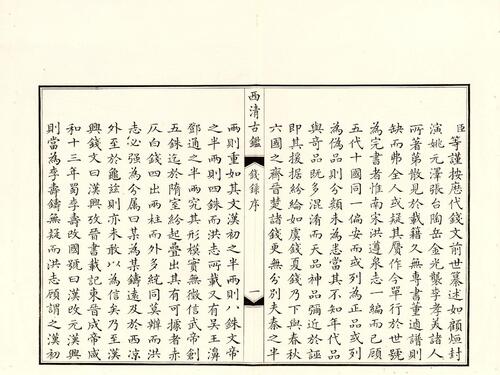 臣等謹按歷代錢文前世纂述如顧烜封
演姚元澤張台陶岳金光襲李孝美諸人
所著第散見於載籍久無專書董逌譜則
缺而弗全人或疑其贋作今單行於世號
為完書者惟南宋洪遵泉志一編而已顧
五代十國同一偏安而或列為正品或列
為偽品則分類未為悉當其不知年代品
與奇品既多混淆而天品神品彌近於誣
即其援据紛綸如虞錢夏錢乃下與春秋
六國之齊晉楚諸錢更無分別夫秦之半
西清古鑑
錢錄序
一
兩則重如其文漢初之半兩則八銖文帝
之半兩則四銖而洪志所載又有吴王濞
鄧通之半兩究其形模實無徵信武帝創
五銖迄於隋室紛起疊出其有可據者赤
仄白錢四出兩柱而外多統同莫辨而洪
志必强為分屬曰某為某鑄逺及於西凉
外至於龜玆則亦未敢以為信矣乃至漢
興錢文曰漢興攷晉書載記東晉成帝咸
和十三年蜀李壽改國號曰漢改元漢興
則當為李壽鑄無疑而洪志顧謂之漢初